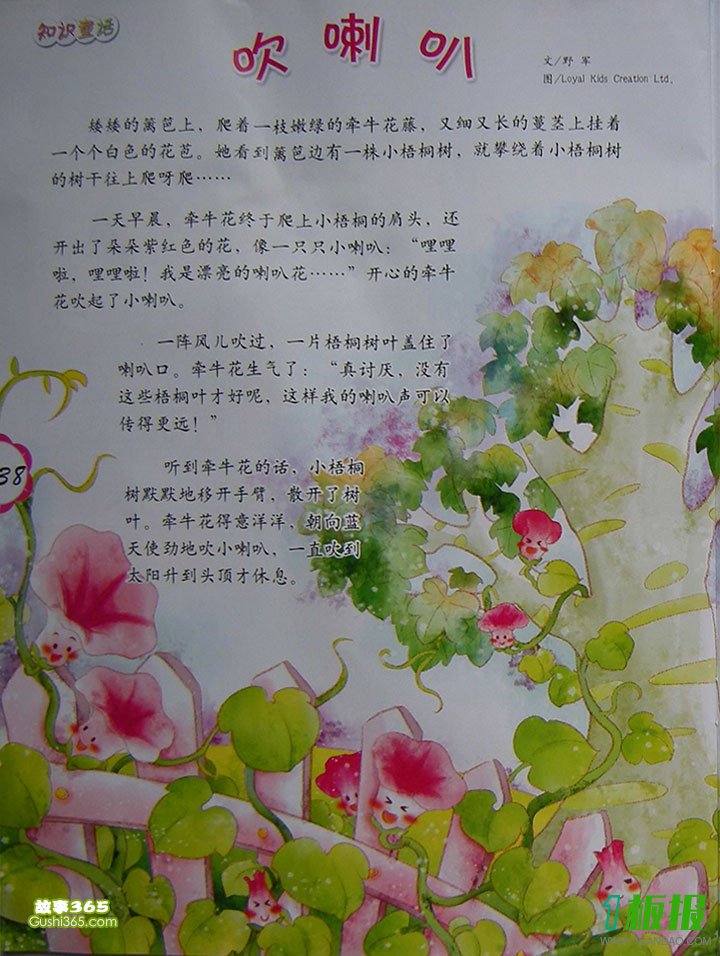 知识童话
吹喇叭
文/野 军
图/Loyal Kids Creation Ltd.
矮矮的篱笆上，爬着一枝嫩绿的牵牛花藤，又细又长的蔓茎上挂着
一个个白色的花苞。她看到篱笆边有一株小梧桐树，就攀绕着小梧桐树
的树干往上爬呀爬……
一天早晨，牵牛花终于爬上小梧桐的肩头，还
开出了朵朵紫红色的花，像一只只小喇叭：“哩哩
啦，哩哩啦！我是漂亮的喇叭花……”开心的牵牛
花吹起了小喇叭。
一阵风儿吹过，一片梧桐树叶盖住了
喇叭口。牵牛花生气了：“真讨厌，没有
这些梧桐叶才好呢，这样我的喇叭声可以
传得更远！”
听到牵牛花的话，小梧桐
树默默地移开手臂，散开了树
叶。牵牛花得意洋洋，朝向蓝
天使劲地吹小喇叭，一直吹到
太阳升到头顶才休息。
38
故事365
Gushi365.com
板报